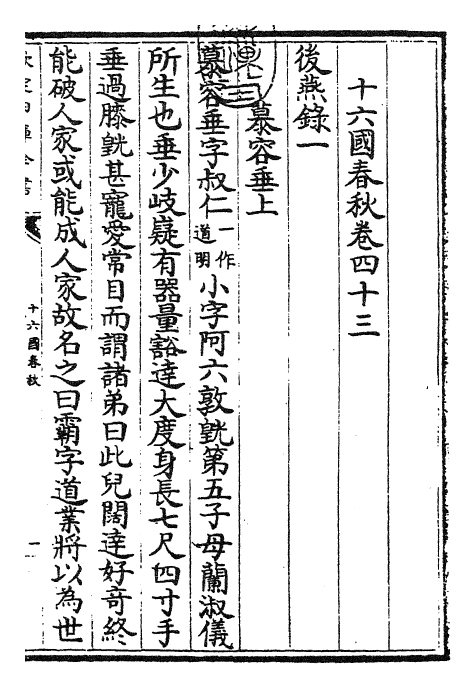 十六國春秋卷四十三
後燕錄一
慕容垂上
慕容垂字叔仁一作道明小字阿六敦皝第五子母蘭淑儀
所生也垂少岐嶷有器量豁達大度身長七尺四寸手
垂過膝皝甚寵愛常目而謂諸弟曰此兒闊達好奇終
能破人家或能成人家故名之曰霸字道業將以為世
十六國春秋
一